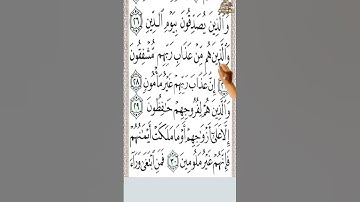 وَٱلَّذِينَ يُصَدِّقُونَ بِيَوْمِ ٱلدِّينِ ٢٦
وَٱلَّذِينَ هُم مِّنْ عَذَابِ رَبِّهِم مُّشْفِقُونَ
إِنَّ عَذَابَ رَبِّهِمْ غَيْرُ مَأْمُونٍ ٢٨
وَٱلَّذِينَ هُمْ لِفُرُوجِهِمْ حَٰفِظُونَ ٢٩
إِلَّا عَلَىٰٓ أَزْوَٰجِهِمْ أَوْ مَا مَلَكَتْ أَيْمَٰنُهُمْ
فَإِنَّهُمْ غَيْرُ مَلُومِينَ ٣٠ فَمَنِ ٱبْتَغَىٰ وَرَآءَ